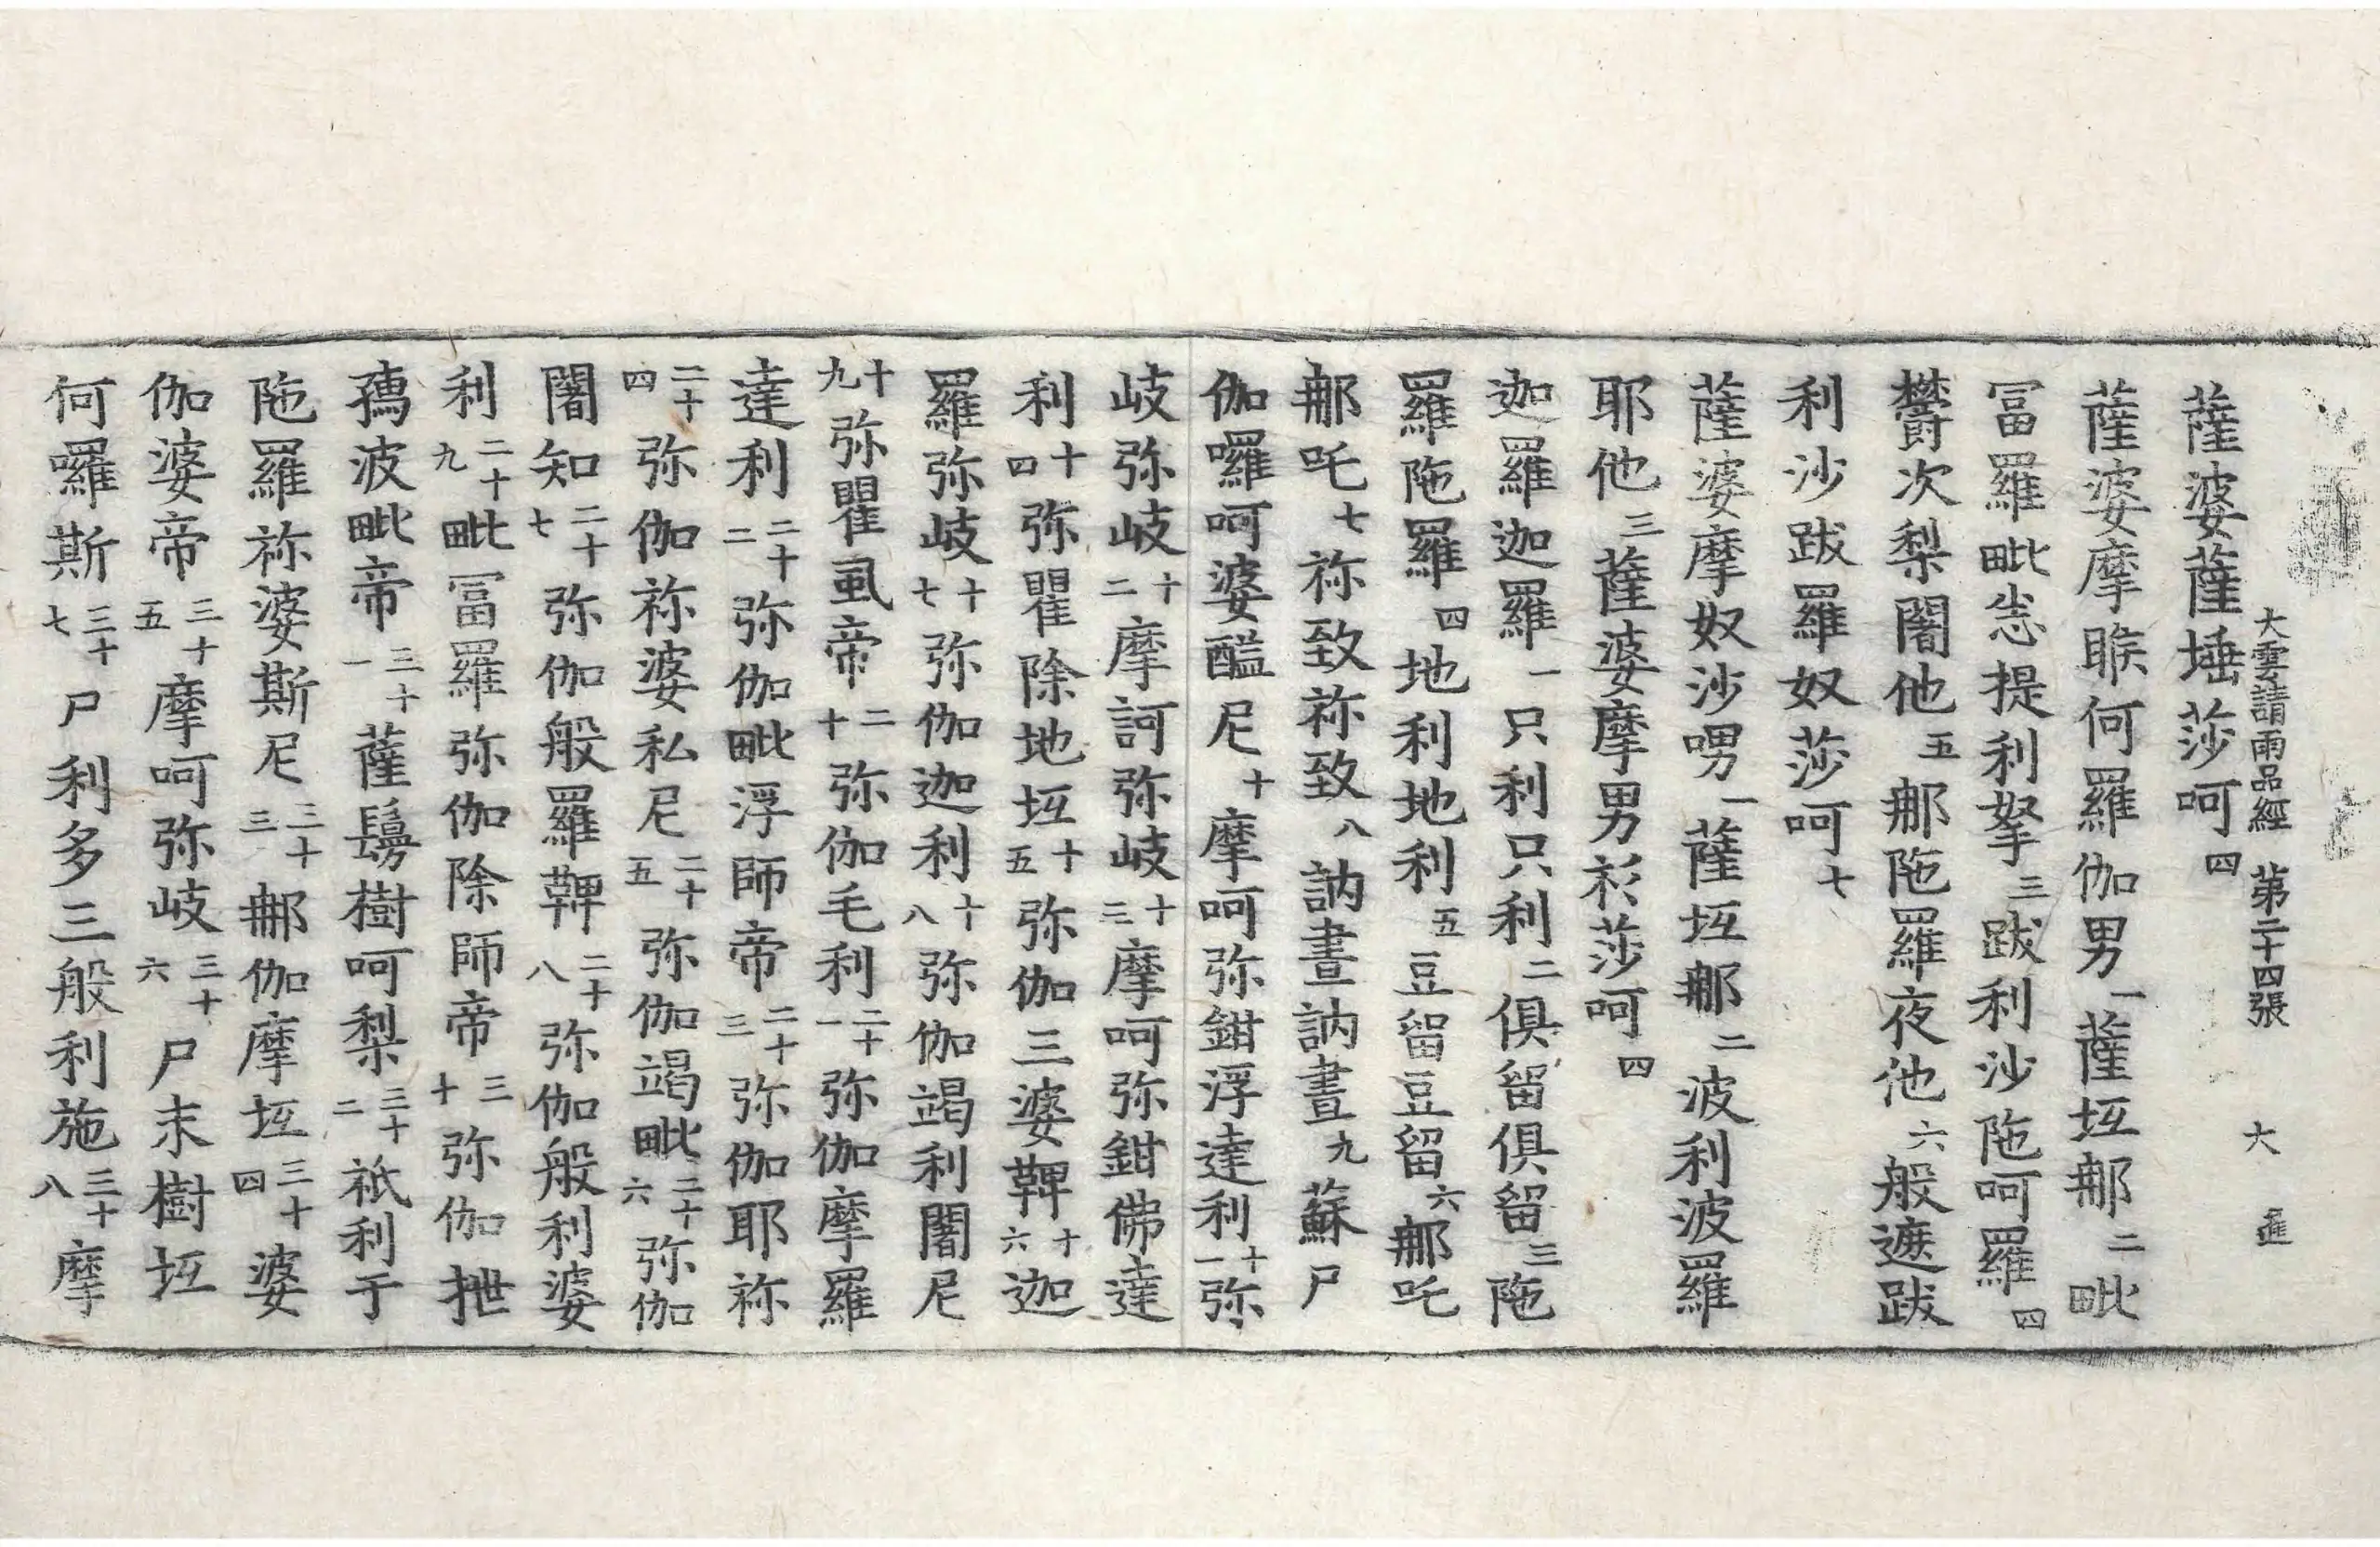 大雲請雨品經　第二十四張　大　𨓍
薩婆薩埵莎呵四
薩婆摩睺何羅伽男一薩坘那二毗
冨羅毗㤅提利拏三跋利沙陁呵羅四
欝次梨闍他五那陁羅夜他六般遮跋
利沙跋羅奴莎呵七
薩婆摩奴沙喟一薩坘那二波利波羅
耶他三薩婆摩男衫莎呵四
迦羅迦羅一只利只利二俱留俱留三陁
羅陁羅四地利地利五豆留豆留六那吒
那吒七祢致祢致八訥晝訥晝九蘇尸
伽囉呵婆醯尼十摩呵弥鉗浮達利十一弥
岐弥岐十二摩訶弥岐十三摩呵弥鉗佛達
利十四弥瞿除地坘十五弥伽三婆鞞十六迦
羅弥岐十七弥伽迦利十八弥伽竭利闍尼
十九弥瞿虱帝二十弥伽毛利二十一弥伽摩羅
達利二十二弥伽毗浮師帝二十三弥伽耶祢
二十四弥伽祢婆私尼二十五弥伽竭毗二十六弥伽
闍知二十七弥伽般羅鞞二十八弥伽般利婆
利二十九毗冨羅弥伽除師帝三十弥伽抴
獢波毗帝三十一薩鬘樹呵梨三十二祇利于
陁羅祢婆斯尼三十三那伽摩坘三十四婆
伽婆帝三十五摩呵弥岐三十六尸末樹坘
何囉斯三十七尸利多三般利施三十八摩